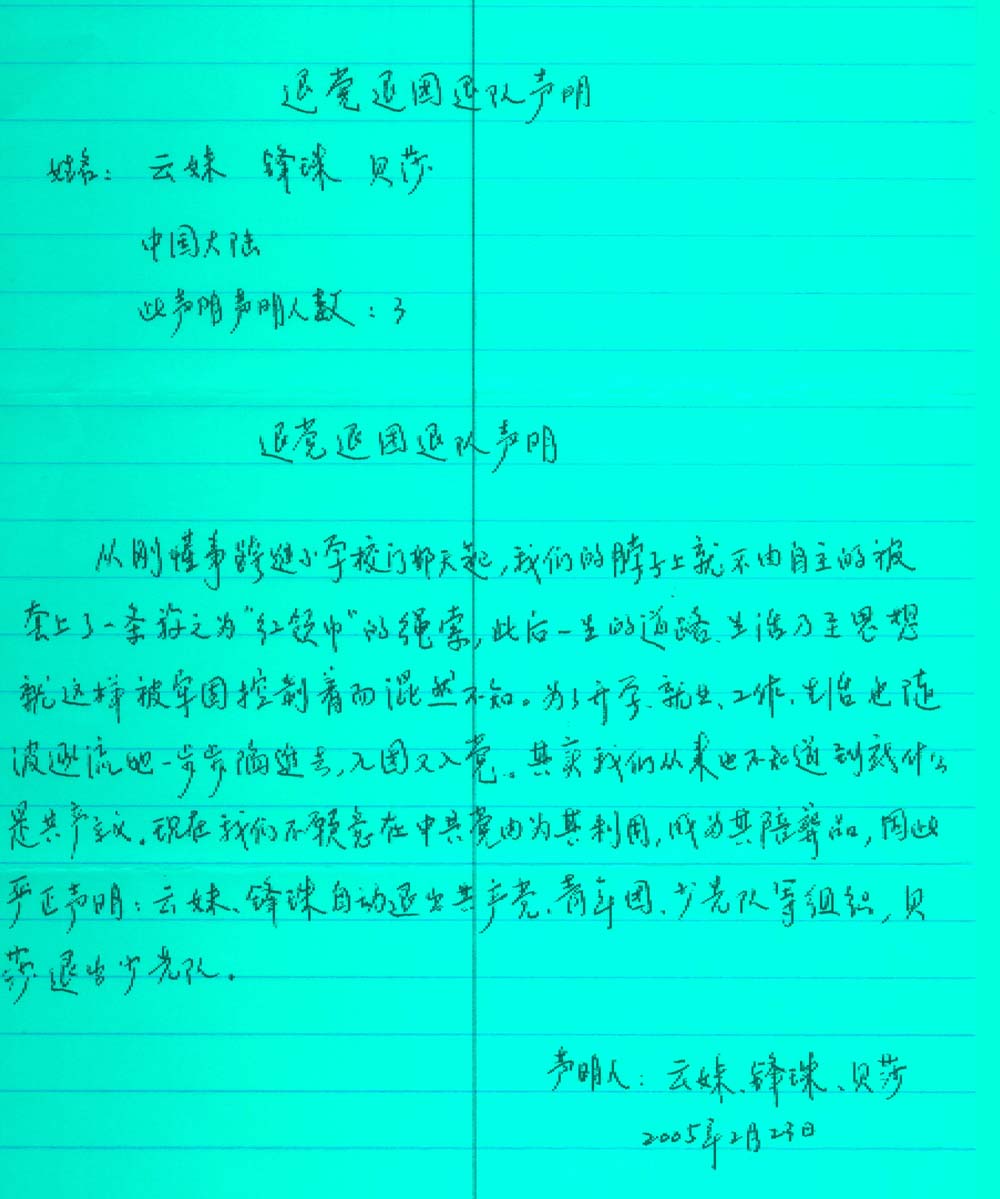 退党退团退队声明
姓名：云妹 锋珠 贝莎
中国大陆
此声明声明人数：3
退党退团退队声明
从刚懂事跨进小学校门那天起，我们的脖子上就不由自主的被
套上了一条称之为“红领巾”的绳索，此后一生的道路、生活乃至思想
就这样被牢固控制着而混然不知。为了升学、就业、工作、生活也随
波逐流地一步步陷进去，入团又入党。其实我们从来也不知道到底什么
是共产主义。现在我们不愿意在中共党内为其利用，成为其陪葬品，因此
严正声明：云妹、锋珠自动退出共产党、青年团、少先队等组织，贝
莎退出少先队。
声明人：云妹、锋珠、贝莎
2005年2月23日